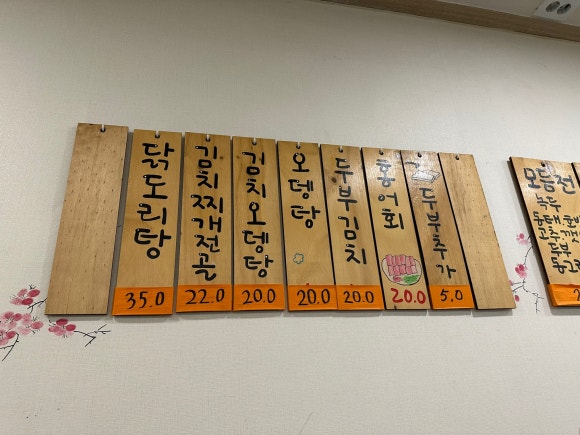 닭도리탕
35.0
김치찌개전골
22.0
김치오뎅탕
20.0
오뎅탕
20.0
두부김치
20.0
홍어회
20.0
두부추가
5.0
모듬전
녹두
동태
고추
두부